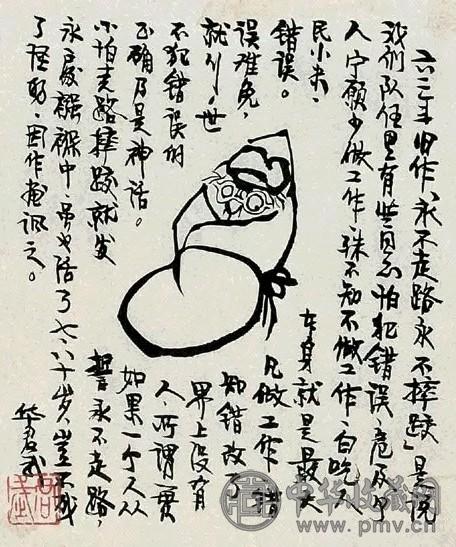 六二年旧作「永不走路永不摔跤」是说
我们队伍里有些同志怕犯错误,危及个
人宁愿少做工作,殊不知不做工作白吃人
民小米,本身就是最大
错误。凡做工作错
误难免,知错改了
就行。世界上没有
不犯错误的人,所谓一贯
正确乃是神话。如果一个人从
小怕走路摔跤就发誓永不走路,
永处襁褓中虽也活了七、八十岁岂不成
了怪物,因作画讽之。
华君武
君武
中华收藏网
www.pmv.cn